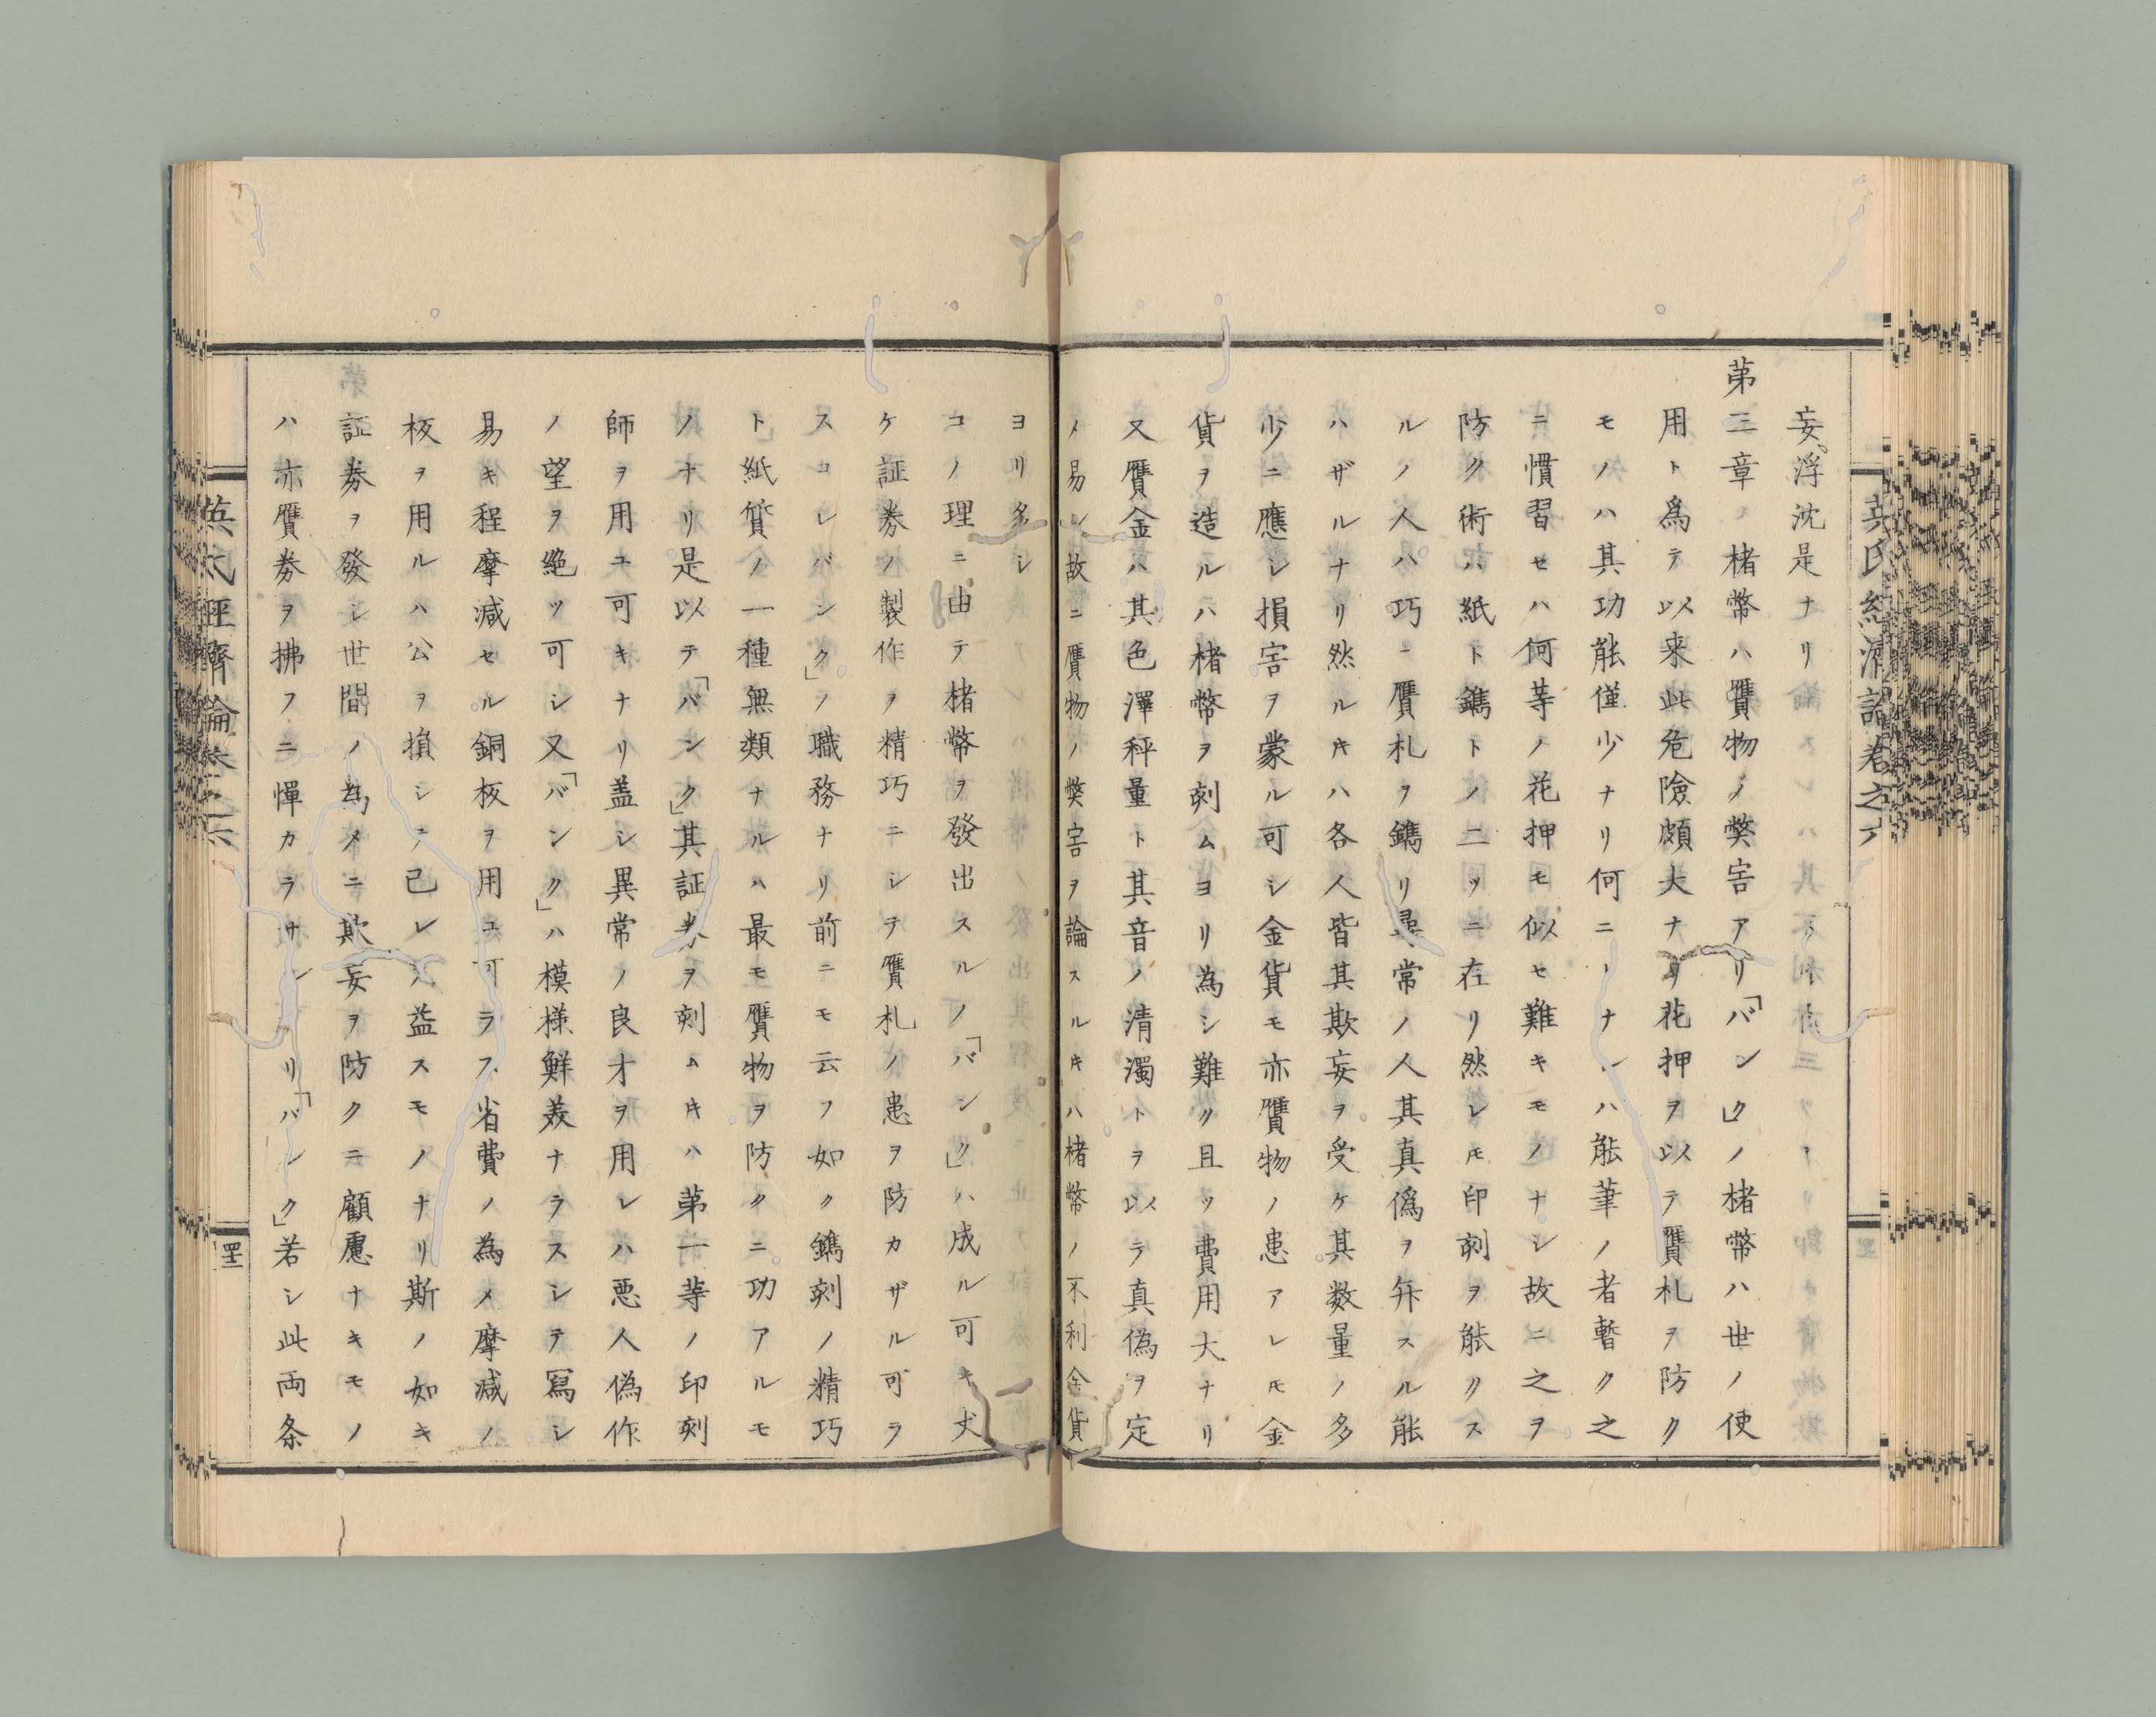 妄、浮沈是ナリ
第三章ニ楮幣ハ贋物ノ獘害アリ「バンク」ノ楮幣ハ世ノ使
用ト爲テ以来此危險頗大ナリ花押ヲ以テ贋札ヲ防ク
モノハ其功能僅少ナリ何ニトナレハ能筆ノ者暫ク之
ニ慣習セハ何等ノ花押モ似セ難キモノナシ故ニ之ヲ
防ク術ハ紙ト鐫トノ二ツニ在リ然レ𪜈印刻ヲ能クス
ルノ人ハ巧ニ贋札ヲ鐫リ尋常ノ人其真偽ヲ弁スル能
ハザルナリ然ルキハ各人皆其欺妄ヲ受ケ其数量ノ多
少ニ應シ損害ヲ蒙ル可シ金貨モ亦贋物ノ患アレ𪜈金
貨ヲ造ルハ楮幣ヲ刻ムヨリ為シ難ク且ツ費用大ナリ
又贋金ハ其色澤秤量ト其音ノ清濁トヲ以テ真偽ヲ定
メ易シ故ニ贋物ノ獘害ヲ論スルキハ楮幣ノ不利金貨
ヨリ多シ
コノ理ニ由テ楮幣ヲ發出スルノ「バンク」ハ成ル可キ丈
ケ証券ノ製作ヲ精巧ニシテ贋札ノ患ヲ防カザル可ラ
スコレバンク」ノ職務ナリ前ニモ云フ如ク鐫刻ノ精巧
ト紙質ノ一種無類ナルハ最モ贋物ヲ防クニ功アルモ
ノナリ是以テ「バンク」其証券ヲ刻ムキハ第一等ノ印刻
師ヲ用ユ可キナリ盖シ異常ノ良才ヲ用レハ悪人偽作
ノ望ヲ絶ツ可シ又「バンク」ハ模様鮮美ナラスシテ寫シ
易キ程摩减セル銅板ヲ用ユ可ラス省費ノ為メ摩减ノ
板ヲ用ルハ公ヲ損シテ己レヲ益スモノナリ斯ノ如キ
証券ヲ發シ世間ノ為メニ欺妄ヲ防クニ顧慮ナキモノ
ハ亦贋券ヲ拂フニ憚カラサルナリ「バンク」若シ此両条
英氏経濟論巻之六